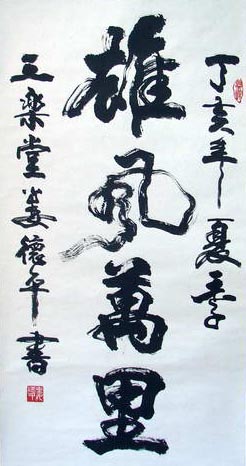 丁亥年夏季
雄风萬里
三樂堂姜懷平書